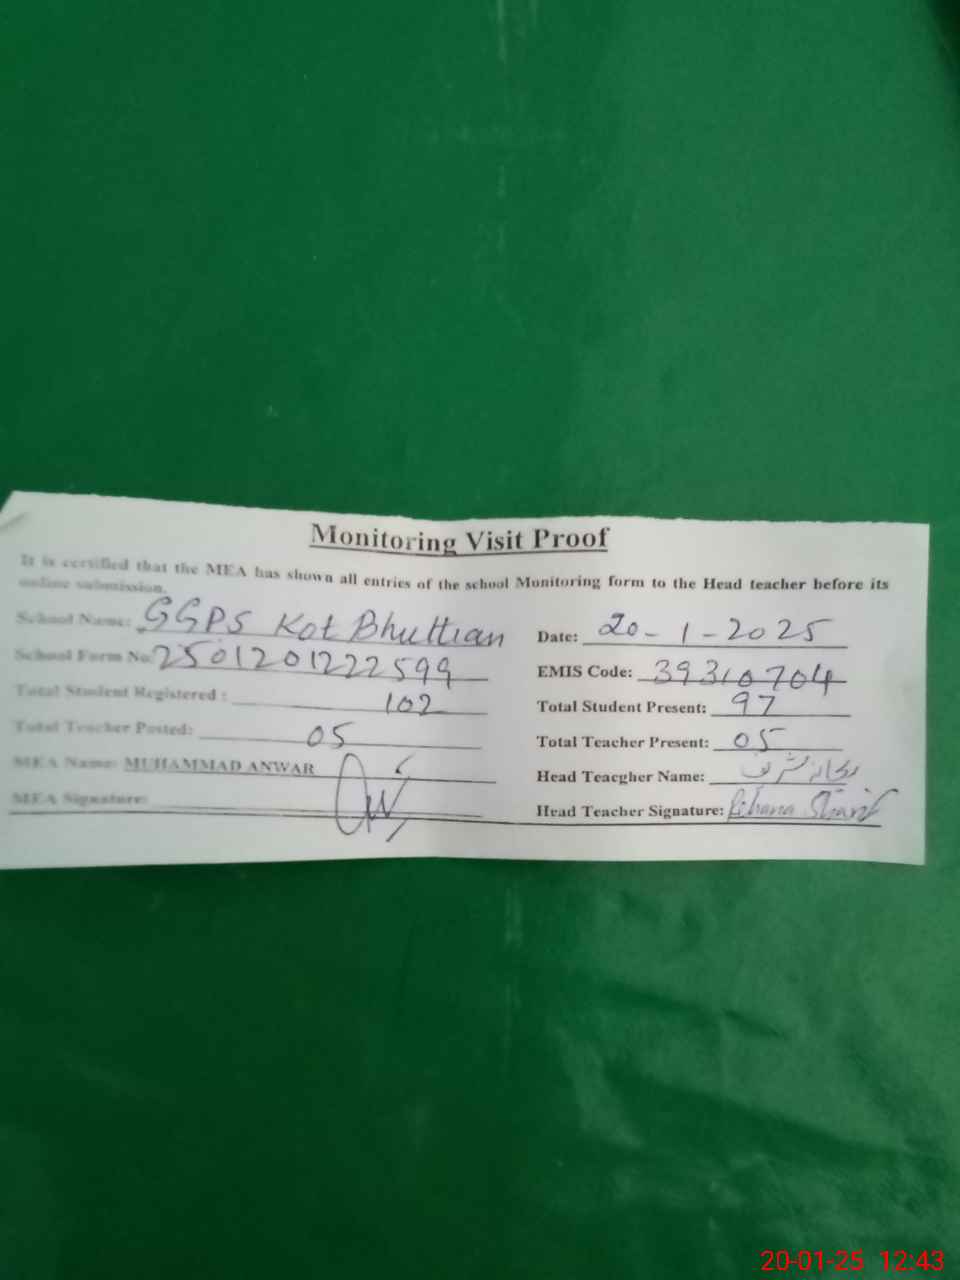 Monitoring Visit Proof
It is certified that the MEA has shown all entries of the school Monitoring form to the Head teacher before its
online submission.
School Name: GGPS Kot Bhuttian
Date: 20-1-2025
School Form No: 2501201222599
EMIS Code: 39310704
Total Student Registered : 102
Total Student Present: 97
Total Teacher Posted: 05
Total Teacher Present: 05
MEA Name: MUHAMMAD ANWAR
Head Teacgher Name: ریحانہ شریف
MEA Signature:
Head Teacher Signature: Rehana Sharif
20-01-25 12:43